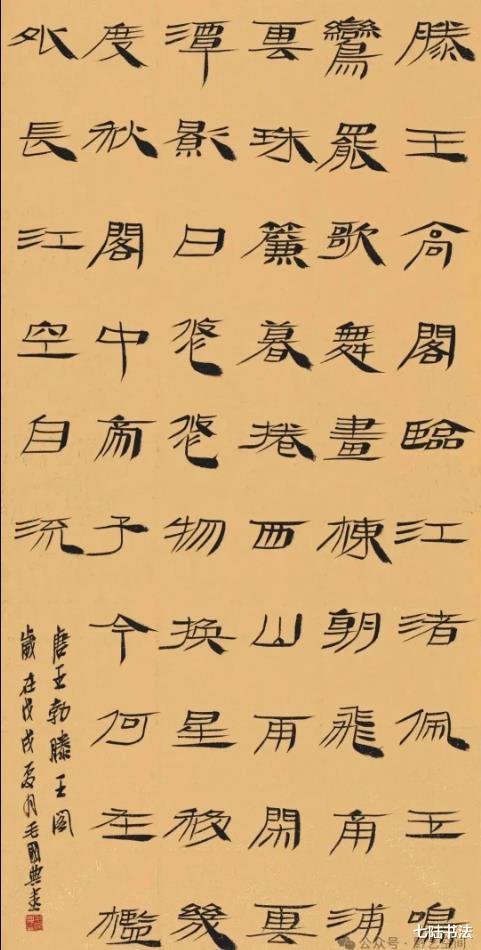 滕王高閣臨江渚佩玉鳴
鸞罷歌舞畫棟朝飛南浦
雲珠簾暮捲西山雨閑雲
潭影日悠悠物換星移幾
度秋閣中帝子今何在檻
外長江空自流
唐王勃滕王閣
歲在戊戌夏月毛國典書
公众号
七陆书法